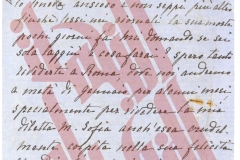 ansioso e non seppi più altro
che lessi nei giornali la sua morte
pochi giorni fa. Mi domando se sei
sola laggiù e cosa farai. E spero tanto
rivederti a Roma, dove noi andremo
a metà di Gennaio per alcuni mesi
specialmente per rivedere la mia
diletta M. Sofia anch'essa crudel-
mente colpita nella sua felicità